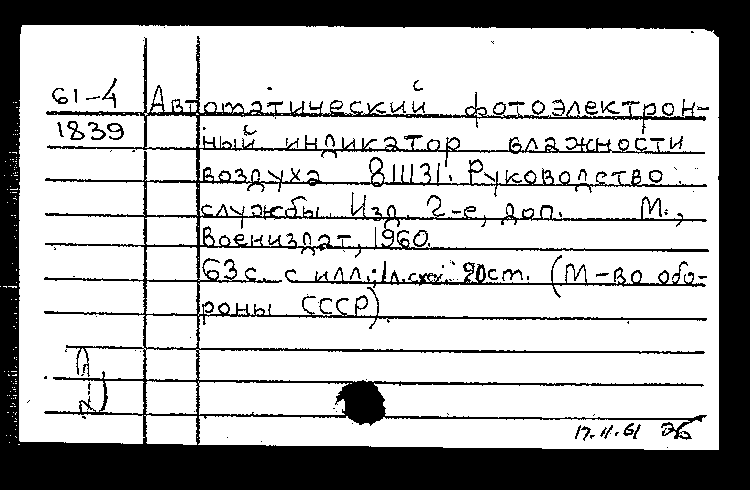 61-4
1839
Автоматический фотоэлектрон-
ный индикатор влажности
воздуха 8Ш31. Руководство
службы. Изд. 2-е, доп. М.,
Воениздат, 1960.
63 с. с илл.; 1 л. схем. 20 см. (М-во обо-
роны СССР)
17.II.61